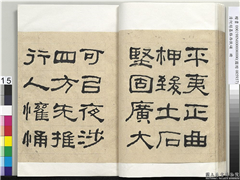 平夷正曲
柙致土石
堅固廣大
可㠯夜涉
四方无雍
行人懽悀
15